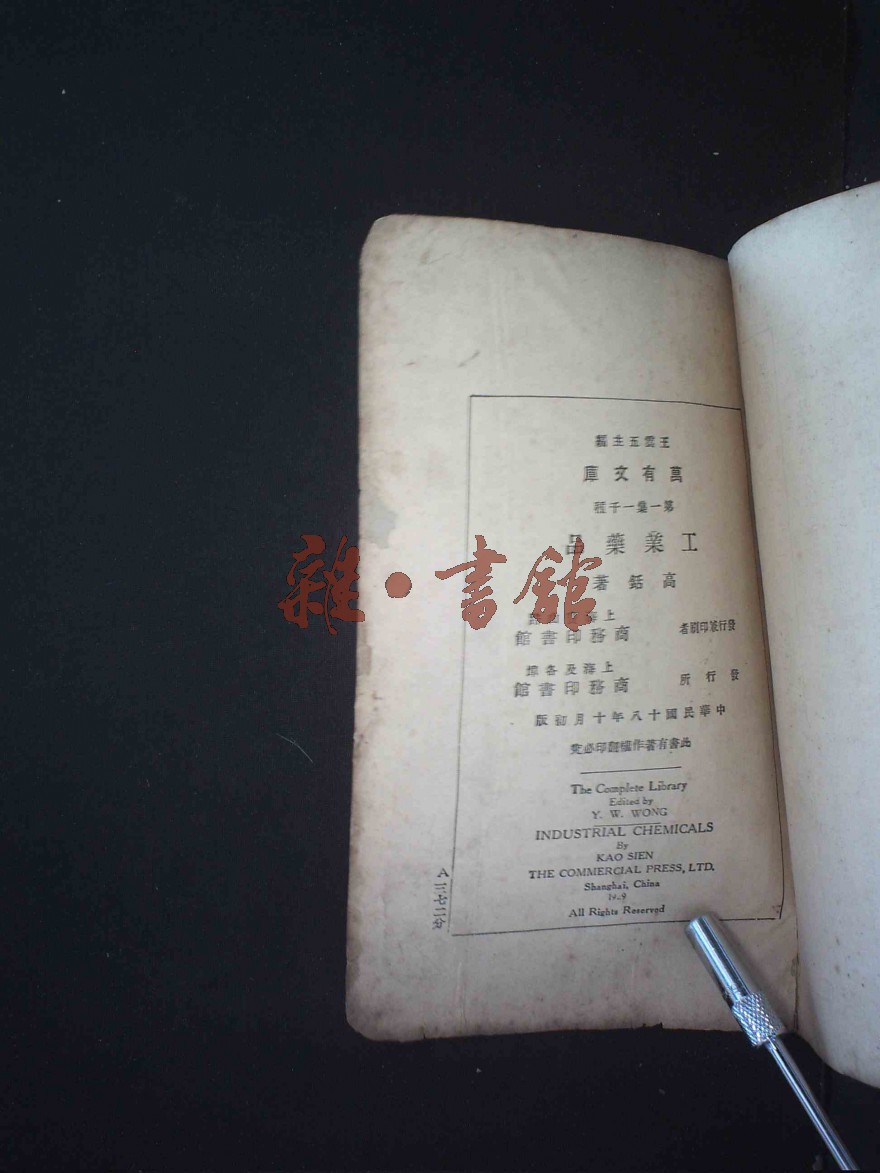 王雲五主編
萬有文庫
第一集一千種
工業藥品
高銛著
發行兼印刷者
上海
商務印書館
發行所
上海及各埠
商務印書館
中華民國十八年十月初版
此書有著作權翻印必究
The Complete Library
Edited by
Y. W. WONG
INDUSTRIAL CHEMICALS
By
KAO SIEN
THE COMMERCIAL PRESS, LTD.
Shanghai, China
All Rights Reserved
A三七二分
雜·書館